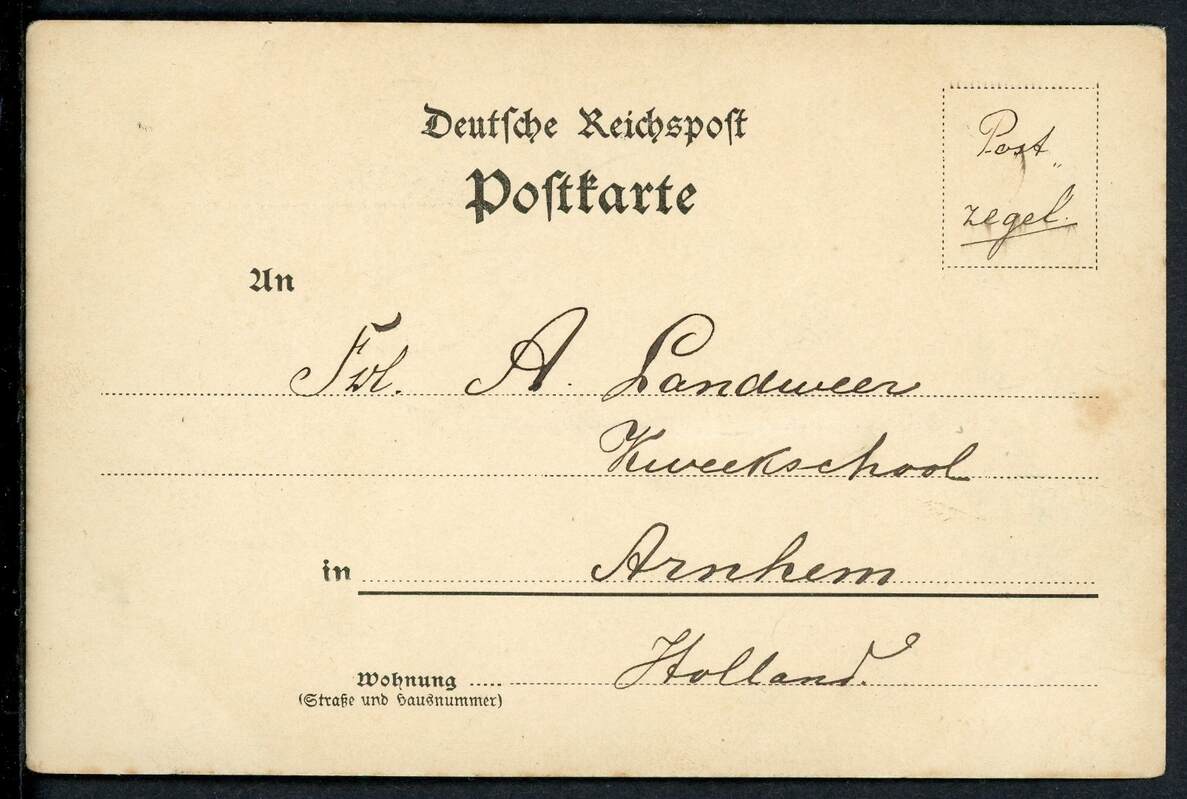 Deutsche Reichspost
Postkarte
Post
zegel.
An
Frl. A. Landweer
Kweekschool
in Arnhem
Holland.
Wohnung
(Straße und Hausnummer)